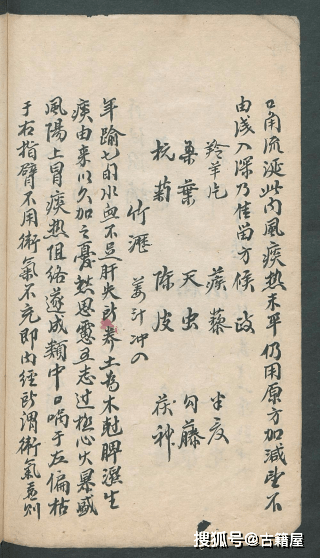 口角流涎此内風痰热未平仍用原方加减望不
由浅入深乃佳留方候政
羚羊片 蒺藜 半夏
桑葉 天虫 勾藤
杭菊 陈皮 茯神
竹瀝 姜汁冲
年踰七旬水亏不足肝失所养土為木尅脾濕生
痰由来以久加之憂愁思慮五志过極心火暴盛
風陽上冒痰热阻络遂成類中口喎于左偏枯
于右指臂不用衛氣不充即内經所謂衛氣虚則
搜狐号@古籍屋